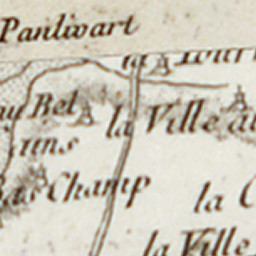 Panlivart
la Tour
ay Bel la Ville au
uns
bas Champ
la C
la Ville